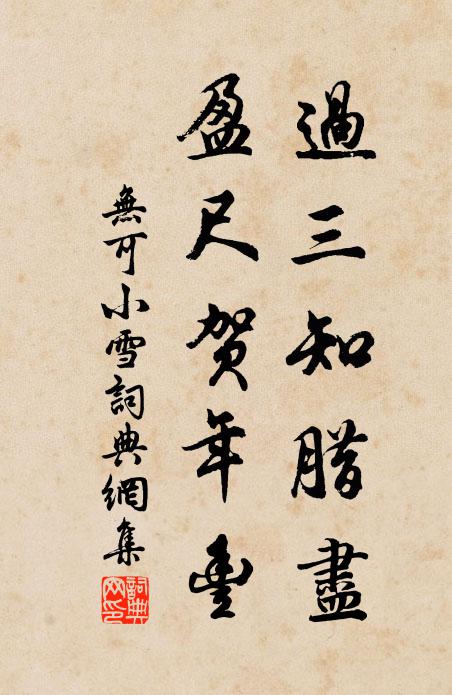 過三知腊盡
盈尺賀年豐
無可小雪詞典網集
詞典網印